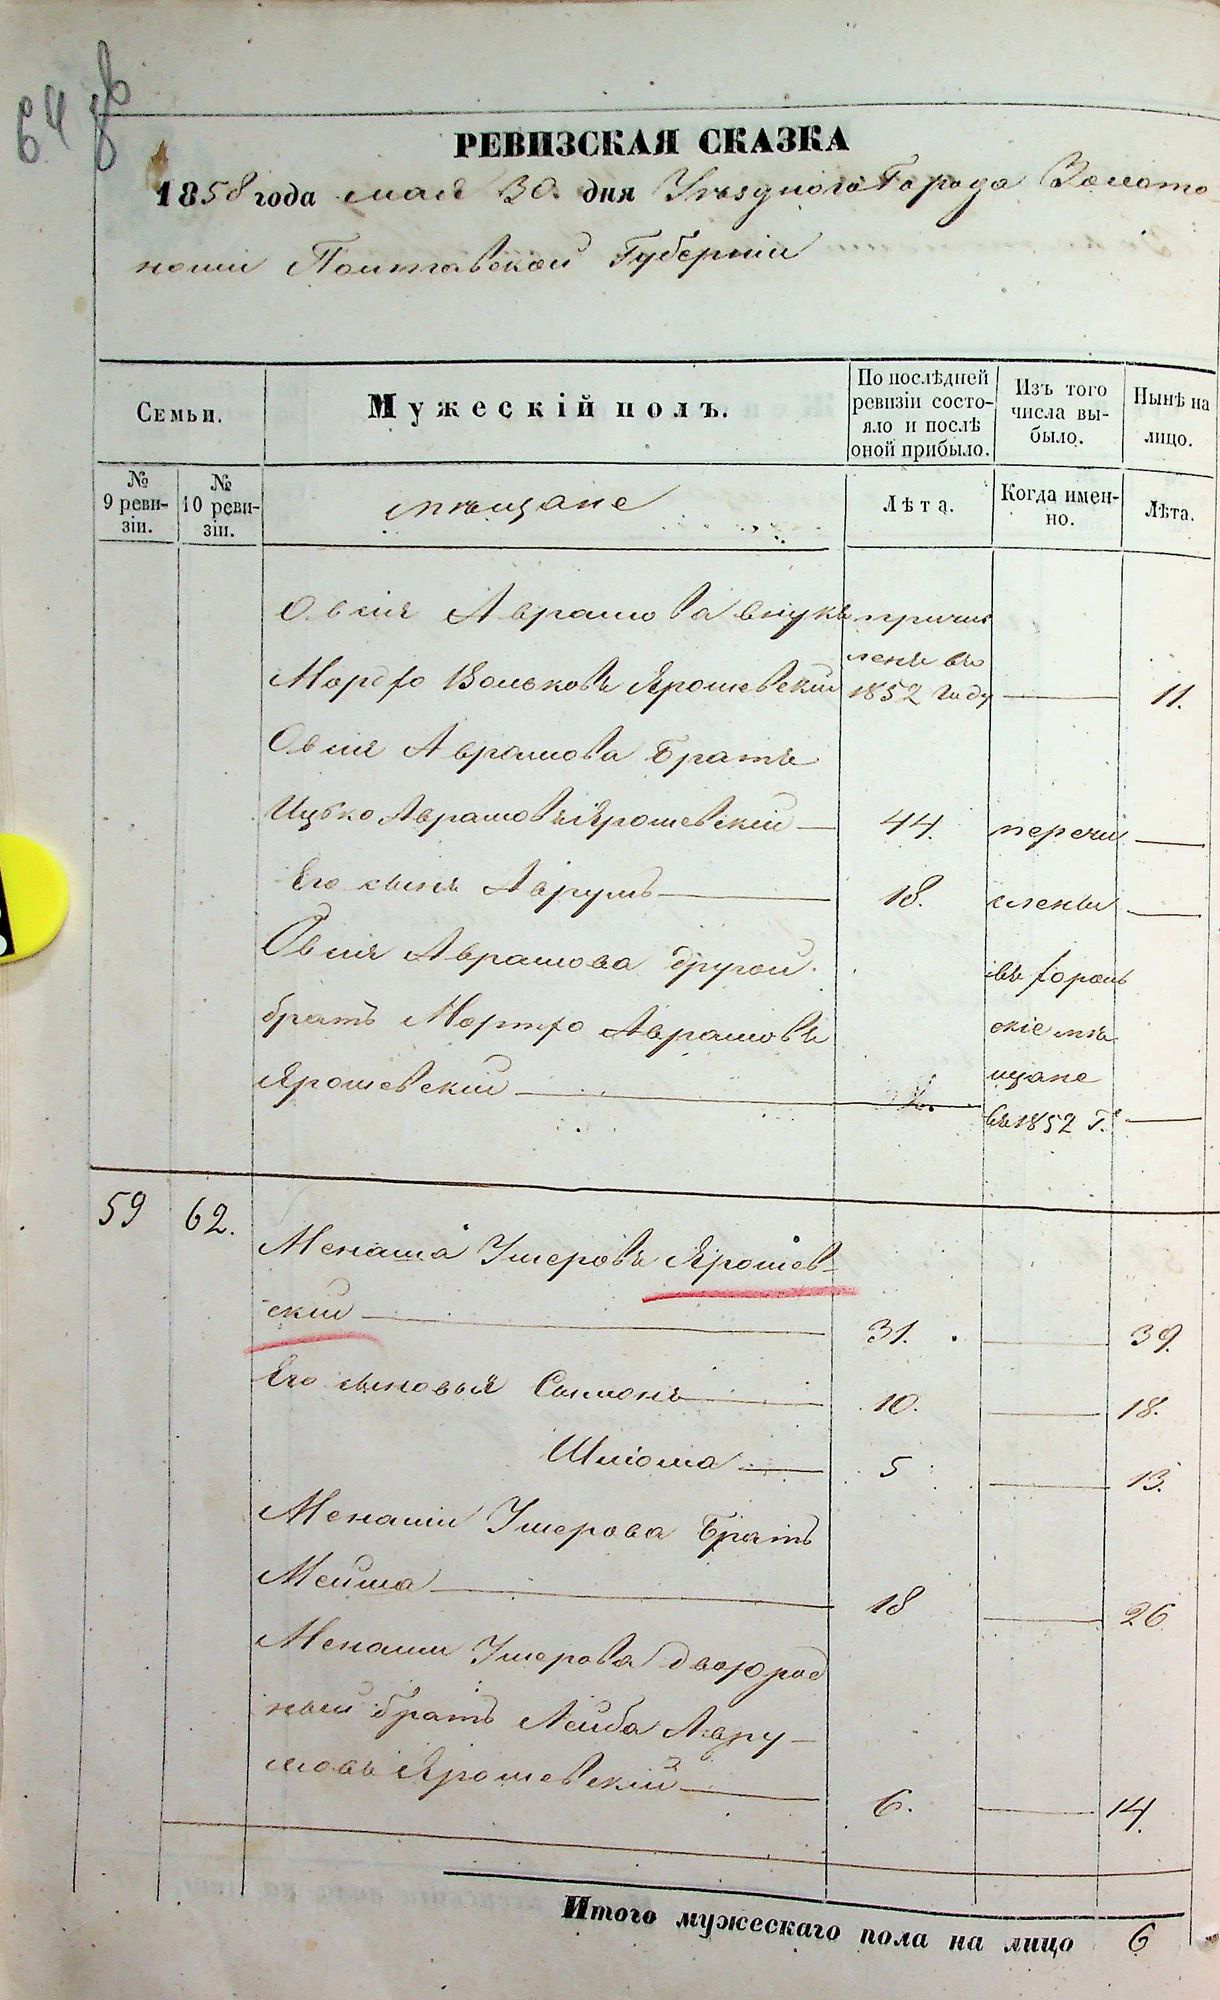 64
РЕВИЗСКАЯ СКАЗКА
1858 года мая 30 дня Уѣзднаго Города Золото-
ноши Полтавской Губерніи
Семьи.
Мужескій полъ.
По послѣдней ревизіи состо-яло и послѣ оной прибыло.
Изъ того числа вы-было.
Нынѣ на лицо.
№ 9 реви-зіи.
№ 10 реви-зіи.
мѣщане
Лѣта.
Когда имен-но.
Лѣта.
Овсія Аврамова внукъ причис
ленъ въ
Мордко Вольковъ Ярошевскій 1852 году 11.
Овсія Аврамова Братъ
Ицько Аврамовъ Ярошевскій 44. перечи
Его сынъ Аврумъ 18. слены
Овсія Аврамова другой въ хороль
братъ Мортко Аврамовъ скіе мѣ
Ярошевскій щане
въ 1852 г.
59 62. Менаша Умеровъ Ярошев-
скій 31. 39.
Его сыновья Симонъ 10. 18.
Шлюма 5 13.
Менаши Умерова Братъ
Мейша 18 26
Менаши Умерова двоюрод
ный братъ Лейба Авру-
мовъ Ярошевскій 6. 14.
Итого мужескаго пола на лицо 6